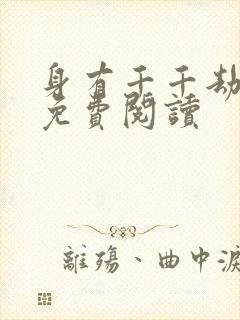 身有千千劫
免費閱讀
離殤、曲中淚